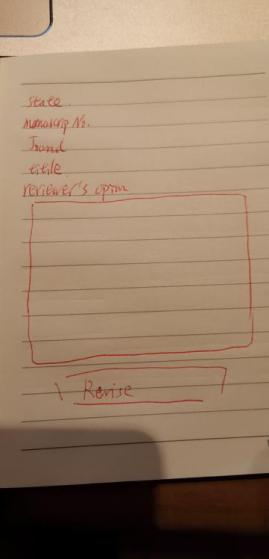 state.
manuscrip No.
Jounal
titile
reviewer's option
Revise